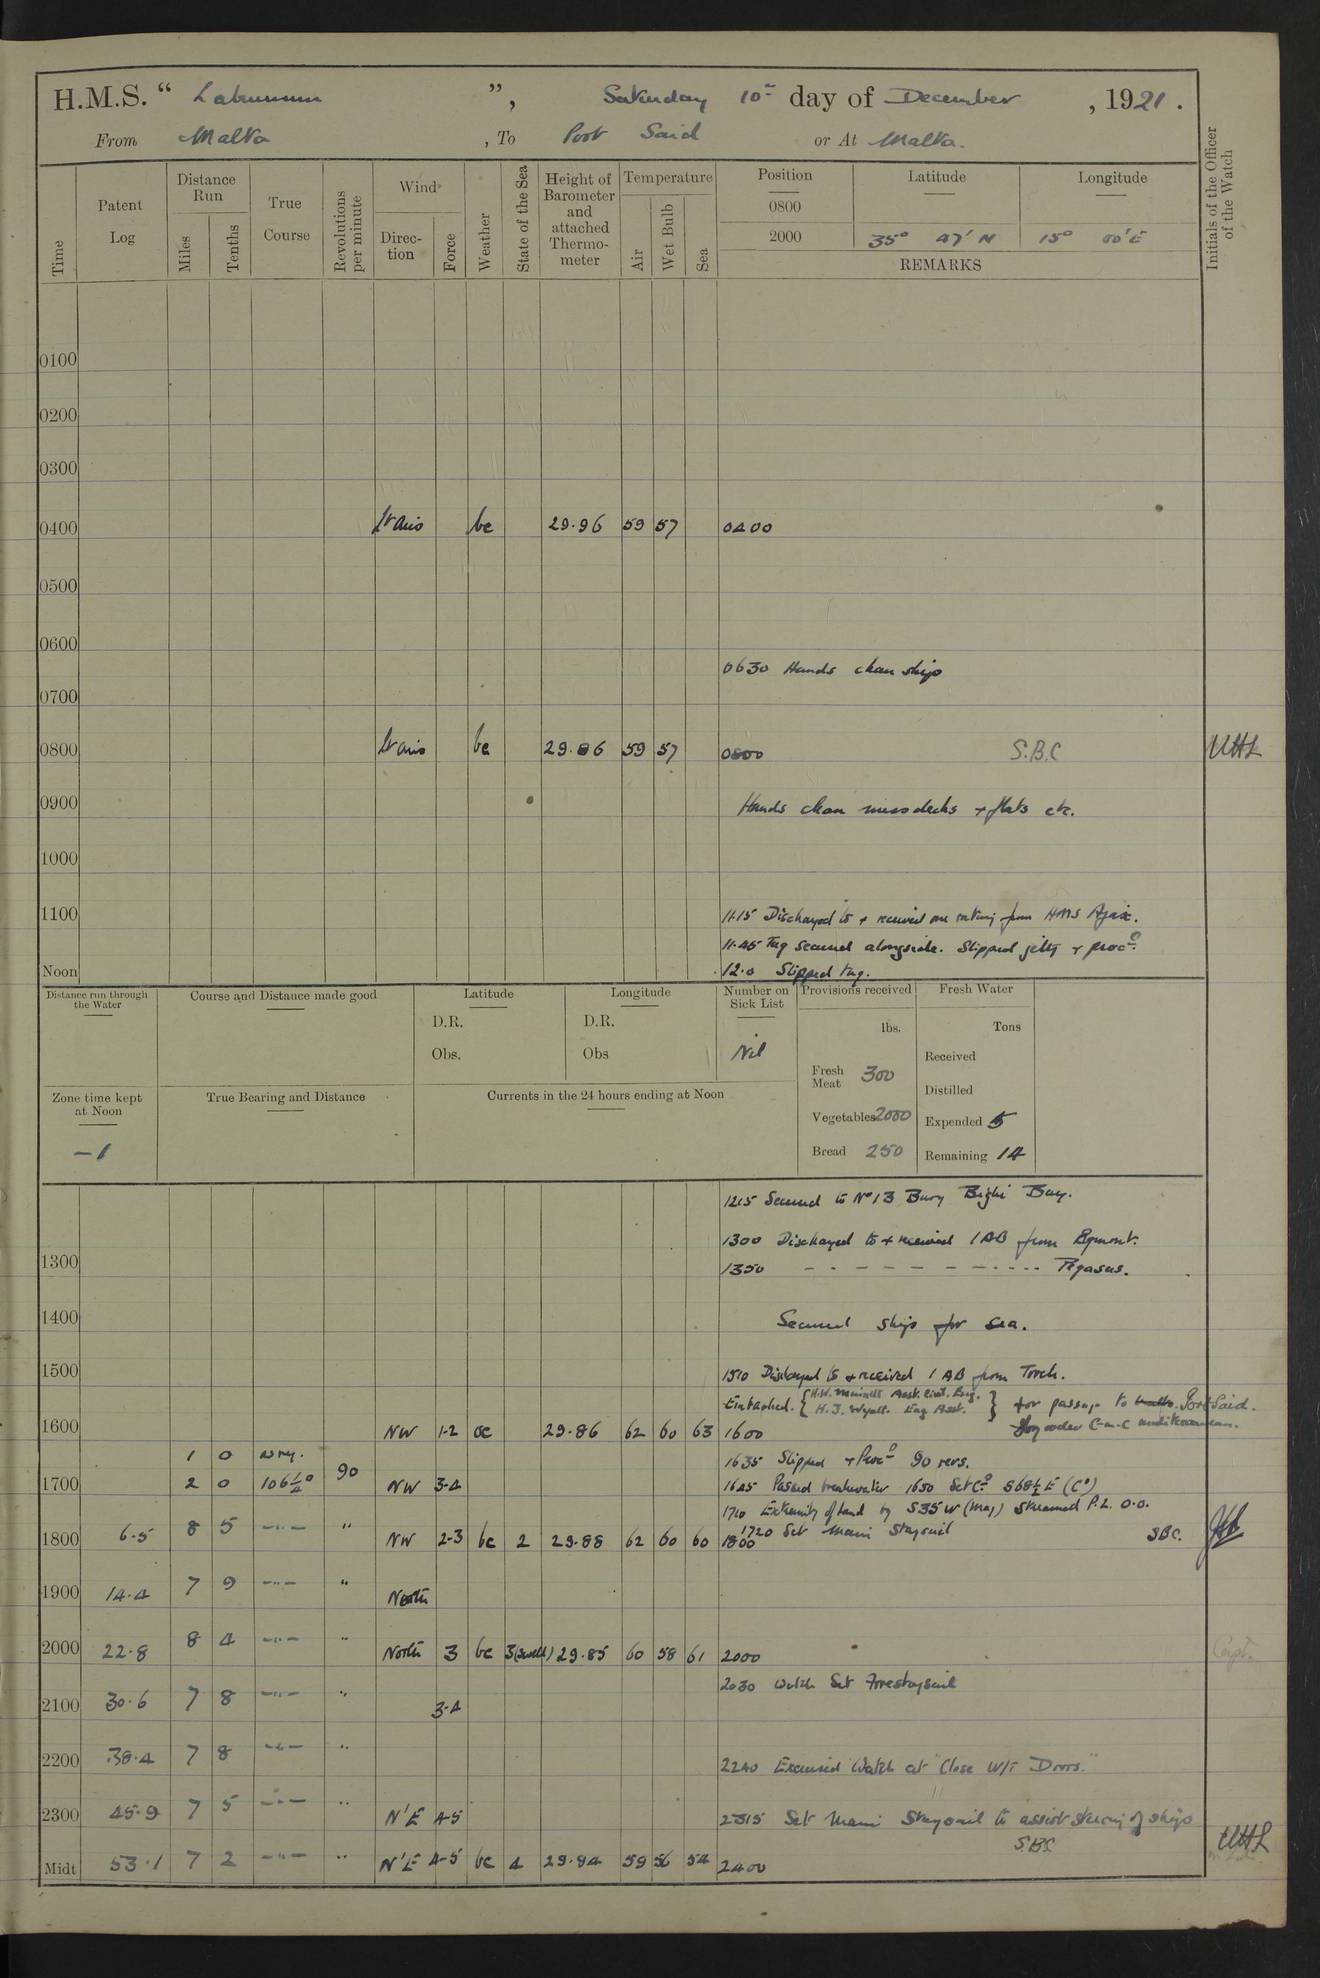 H.M.S. “ Laburnum ”, Saturday 10th day of December , 1921 .
From Malta , To Port Said or At Malta.
Time Patent Log Distance Run Miles Tenths True Course Revolutions per minute Wind Direc-tion Force Weather State of the Sea Height of Barometer and attached Thermo-meter Temperature Air Wet Bulb Sea Position Latitude Longitude Initials of the Officer of the Watch
0800
2000 35° 47' N 15° 00' E
REMARKS
0100
0200
0300
0400 Lt airs bc 29.96 59 57 0400
0500
0600
0630 Hands clean ship
0700
0800 Lt airs bc 29.86 59 57 0800 S.B.C
0900 Hands clean messdecks & flats etc.
1000
1100 11.15 Discharged to & received one rating from HMS Ajax.
11.45 Tug secured alongside. Slipped jetty & procd.
Noon 12.0 Slipped tug.
Distance run through the Water Course and Distance made good Latitude Longitude Number on Sick List Provisions received Fresh Water
D.R. D.R. lbs. Tons
Obs. Obs Nil Received
Fresh Meat 300
Distilled
Zone time kept at Noon True Bearing and Distance Currents in the 24 hours ending at Noon
Vegetables 2000 Expended 5
-1 Bread 250 Remaining 14
1215 Secured to No 13 Buoy Bighi Bay.
1300 1300 Discharged to & received 1 AB from Egmont.
1350 - - - - - - - - - - - Pegasus.
1400 Secured ship for sea.
1500 1510 Discharged to & received 1 AB from Torch.
Embarked. { H.W. Asst. Civil. Eng.
H.J. Wyatt. Eng Asst. } for passage to Malta. Port Said.
by order C-in-C Mediterranean.
1600 NW 1-2 oc 29.86 62 60 63 1600
1 0 as req. 1635 Slipped & Procd 90 revs.
1700 2 0 106¼° 90 NW 3-4 1645 Passed breakwater 1650 Set Co S68½E (Co)
1710 Extremity of land by S35W (Mag) Streamed P.L. 0.0.
1720 Set Main Staysail
1800 6.5 8 5 -"- " NW 2-3 bc 2 29.88 62 60 60 1800 SBC.
1900 14.4 7 9 -"- " North
2000 22.8 8 4 -"- " North 3 bc 3(swell) 29.85 60 58 61 2000 Capt.
2030 Watch Set Forestaysail
2100 30.6 7 8 -"- " 3-4
2200 38.4 7 8 -"- " 2240 Exercised Watch at "Close W/T Doors."
2300 45.9 7 5 -"- " N'E 4-5 2315 Set Main Staysail to assist steering of ship
S.B.C.
Midt 53.1 7 2 -"- " N'E 4-5 bc 4 29.94 59 56 54 2400